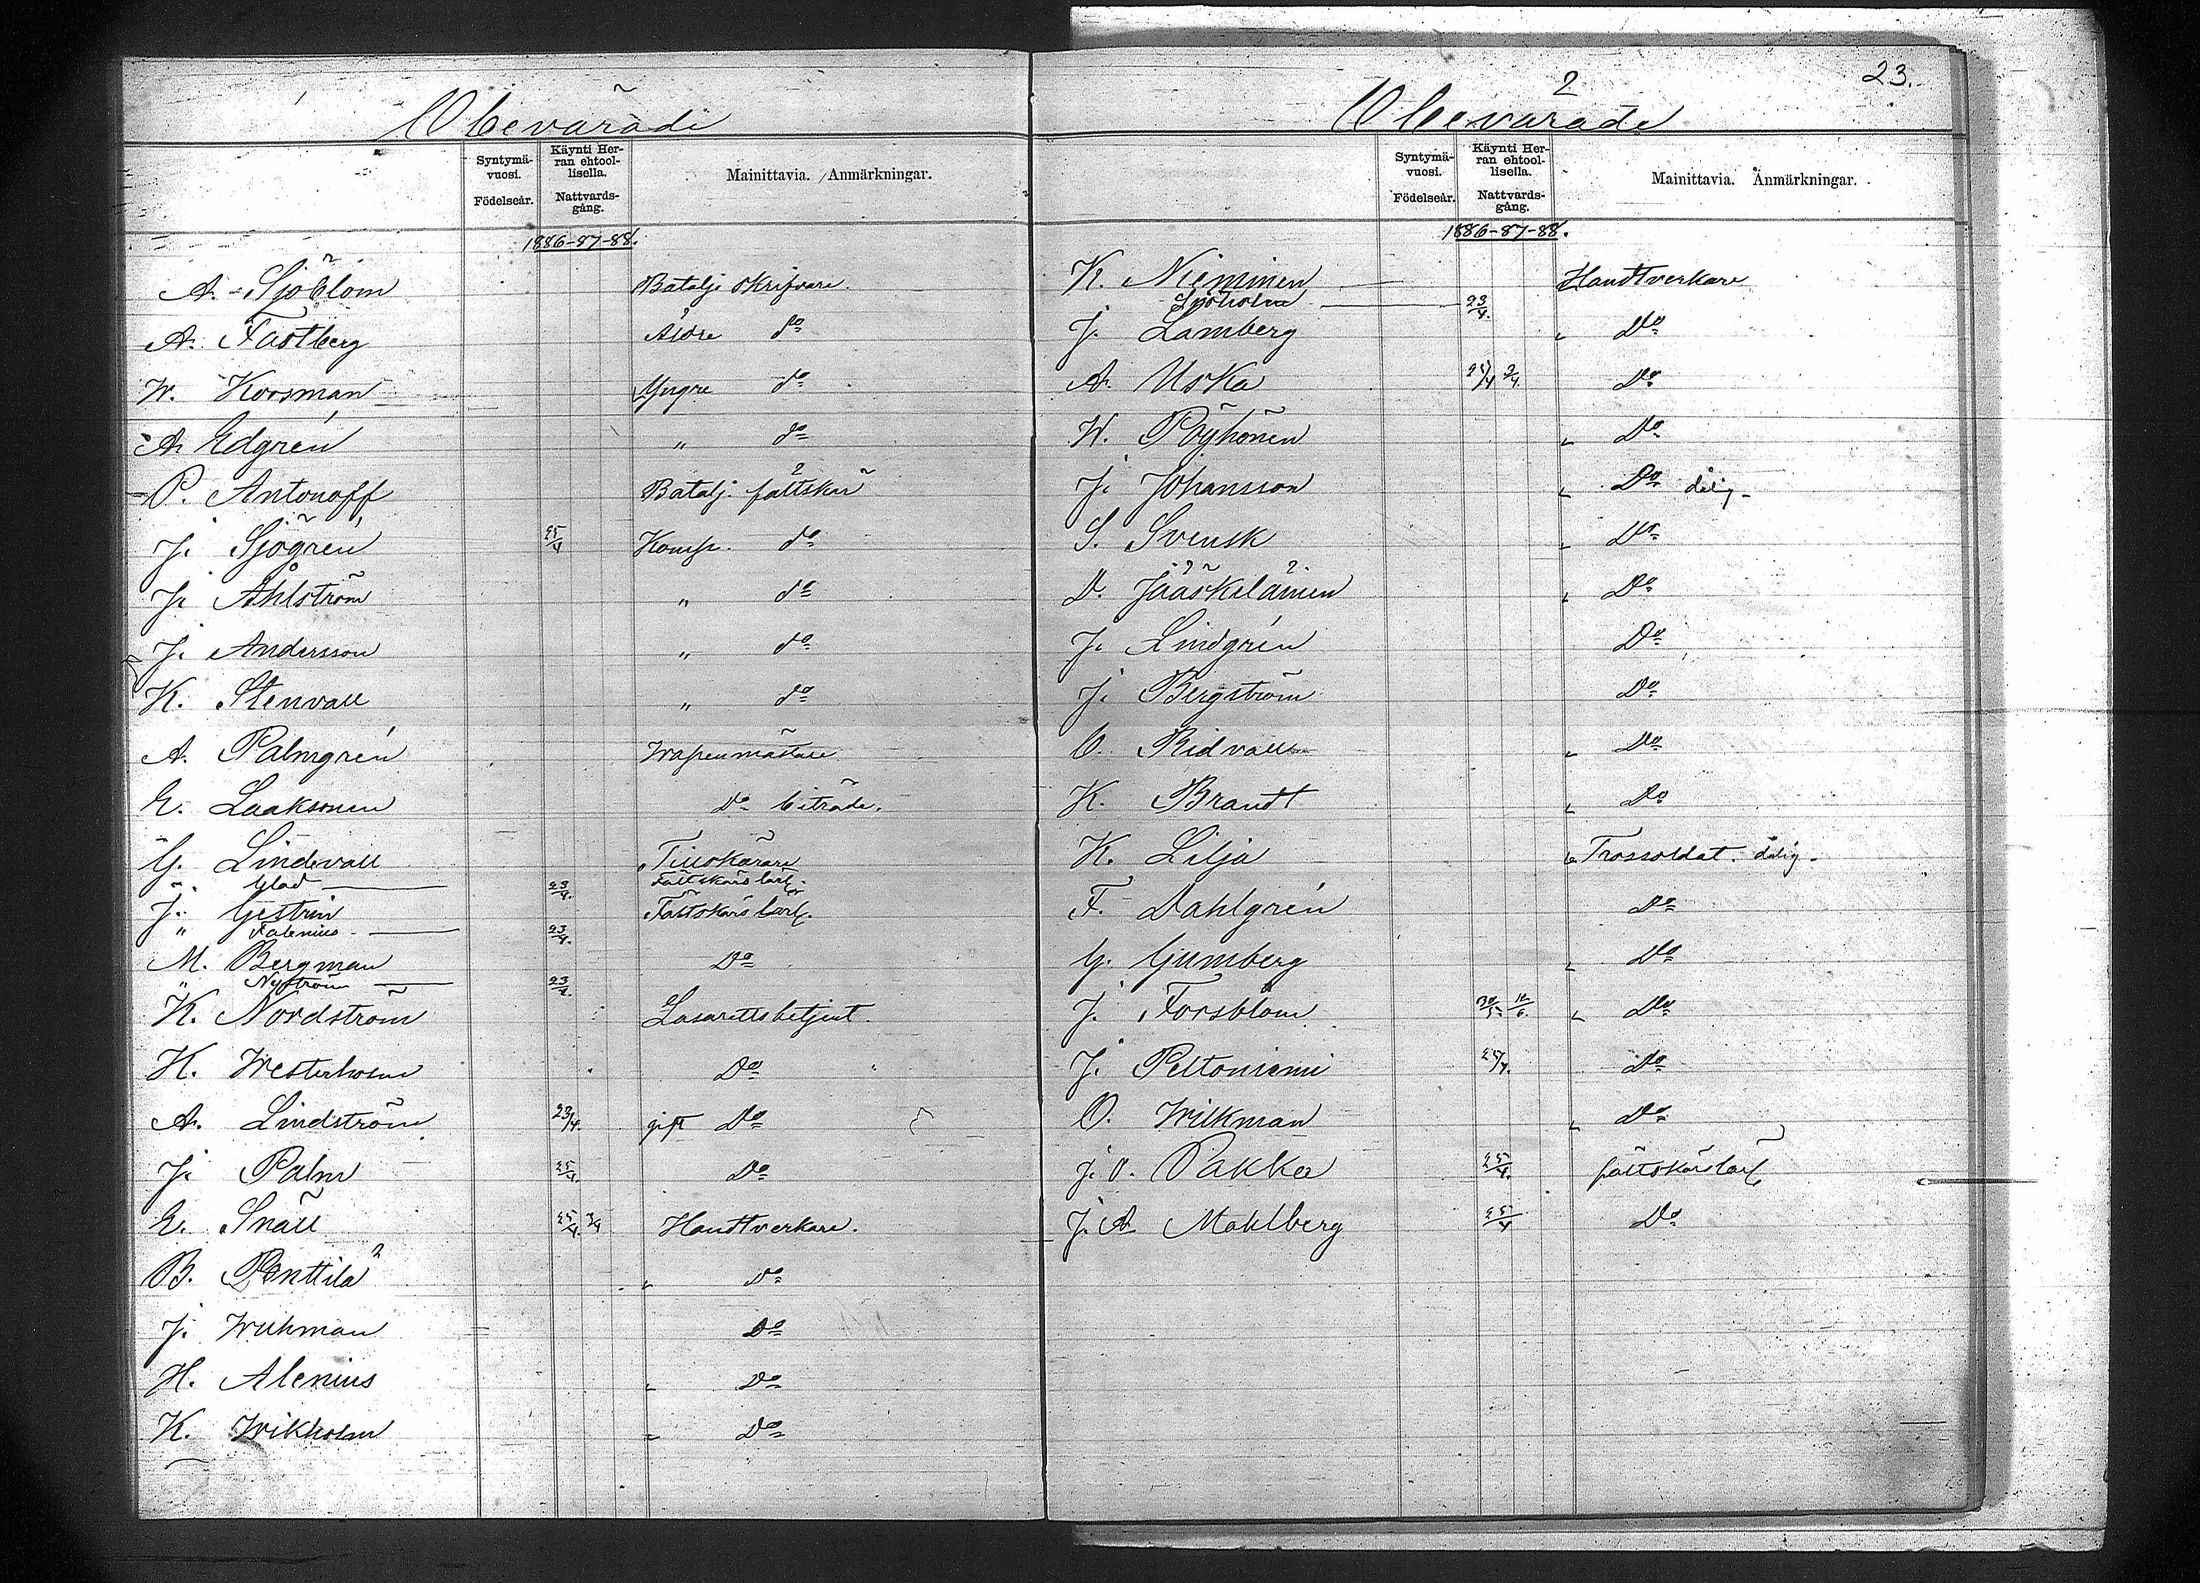 Obeväräde
Syntymävuosi. Födelseår.
Käynti Herran ehtoollisella. Nattvardsgång.
Mainittavia. Anmärkningar.
1886-87-88.
A. Sjöblom Batalj. skrifvare.
A. Fastberg Äldre do
W. Korsman Yngre do
A. Edgrén " do
P. Antonoff Batalj. fältskär
J. Sjögrén 25/4 Komp. do
J. Åhlström " do
J. Andersson " do
K. Stenvall " do
A. Palmgrén Wapenmästare
E. Laaksonen Do biträde.
G. Lindvall
" Glad 23/4. Fältskärslärl.
J. Gestrin Fältskärslärl.
" Falenius 23/4.
M. Bergman Do
" Nyström 23/4.
K. Nordström Lasarettsbetjent.
K. Westerholm Do
A. Lindström 23/4. gift Do
J. Palm 25/4. Do
E. Snäll 25/4. 3/4 Handtverkare.
B. Penttilä " Do
J. Wichman Do
H. Alenius " Do
K. Wikholm " Do
2 23.
Obevärade
Syntymävuosi. Födelseår.
Käynti Herran ehtoollisella. Nattvardsgång.
Mainittavia. Anmärkningar.
1886-87-88.
K. Nieminen Handtverkare
23/4.
J. Lamberg " Do
A. Uska 25/4 2/4. Do
W. Pöyhönen " Do
J. Johansson " Do dålig
S. Svensk " Do
D. Jääskeläinen " Do
J. Lindgrén Do
J. Bergström Do
O. Ridvall " Do
K. Brandt " Do
K. Lilja " Trossoldat. dålig.
F. Dahlgrén Do
G. Gumberg " Do
J. Forsblom 30/5. 10/6. " Do
J. Peltoniemi 25/4. Do
O. Wilkman " Do
J. O. Pakka 25/4. fältskärslärl
J. A. Mahlberg 25/4 Do